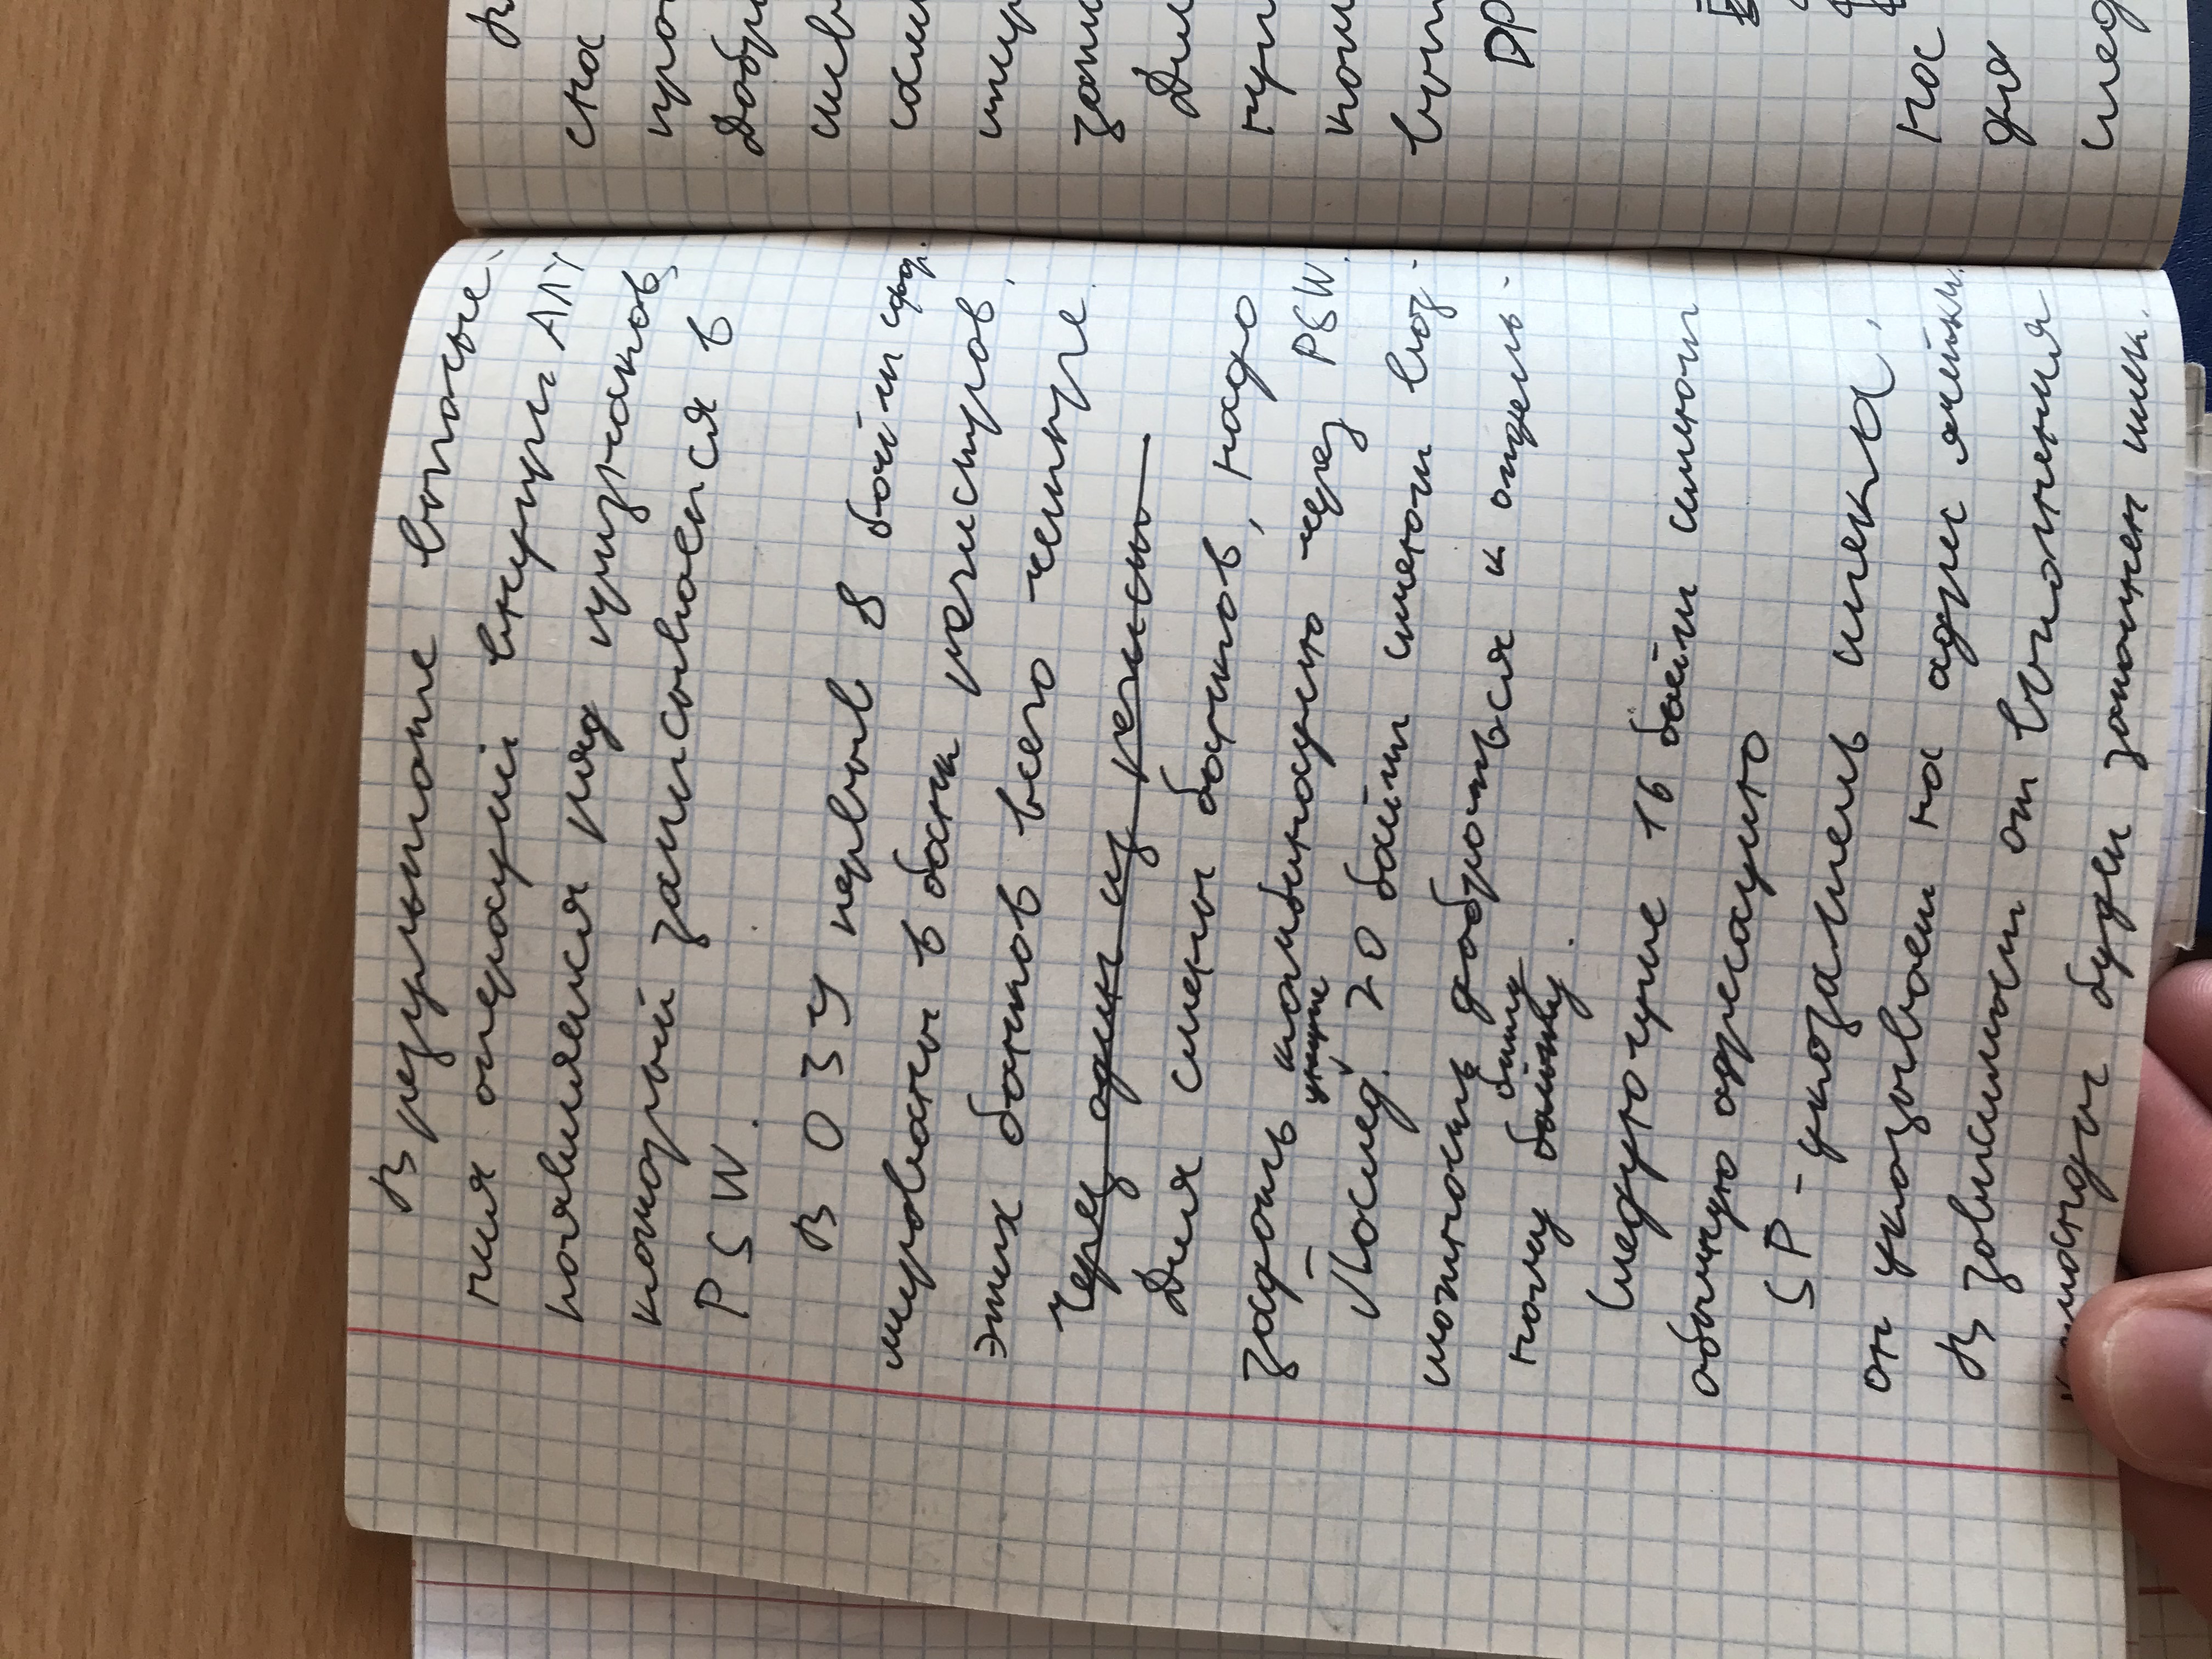 В результате выполне-
ния операций внутри АЛУ
появляется ряд признаков,
который записывается в
PSW.
В ОЗУ первые 8 байт сфор-
мированы в банк регистров,
этих банков всего четыре.
Через один из регист
Для смены банков, надо
задать комбинацию через PSW.
Последующие 20 байт имеют воз-
можность добраться к отдель-
ному байту биту.
Следующие 16 байт имеют
обычную адресацию
SP - указатель стека,
он указывает на адрес ячейки.
В зависимости от выполнения
команды будет заполнен стек.
В
сна
Добр
запи
Для
DP
на
до
след